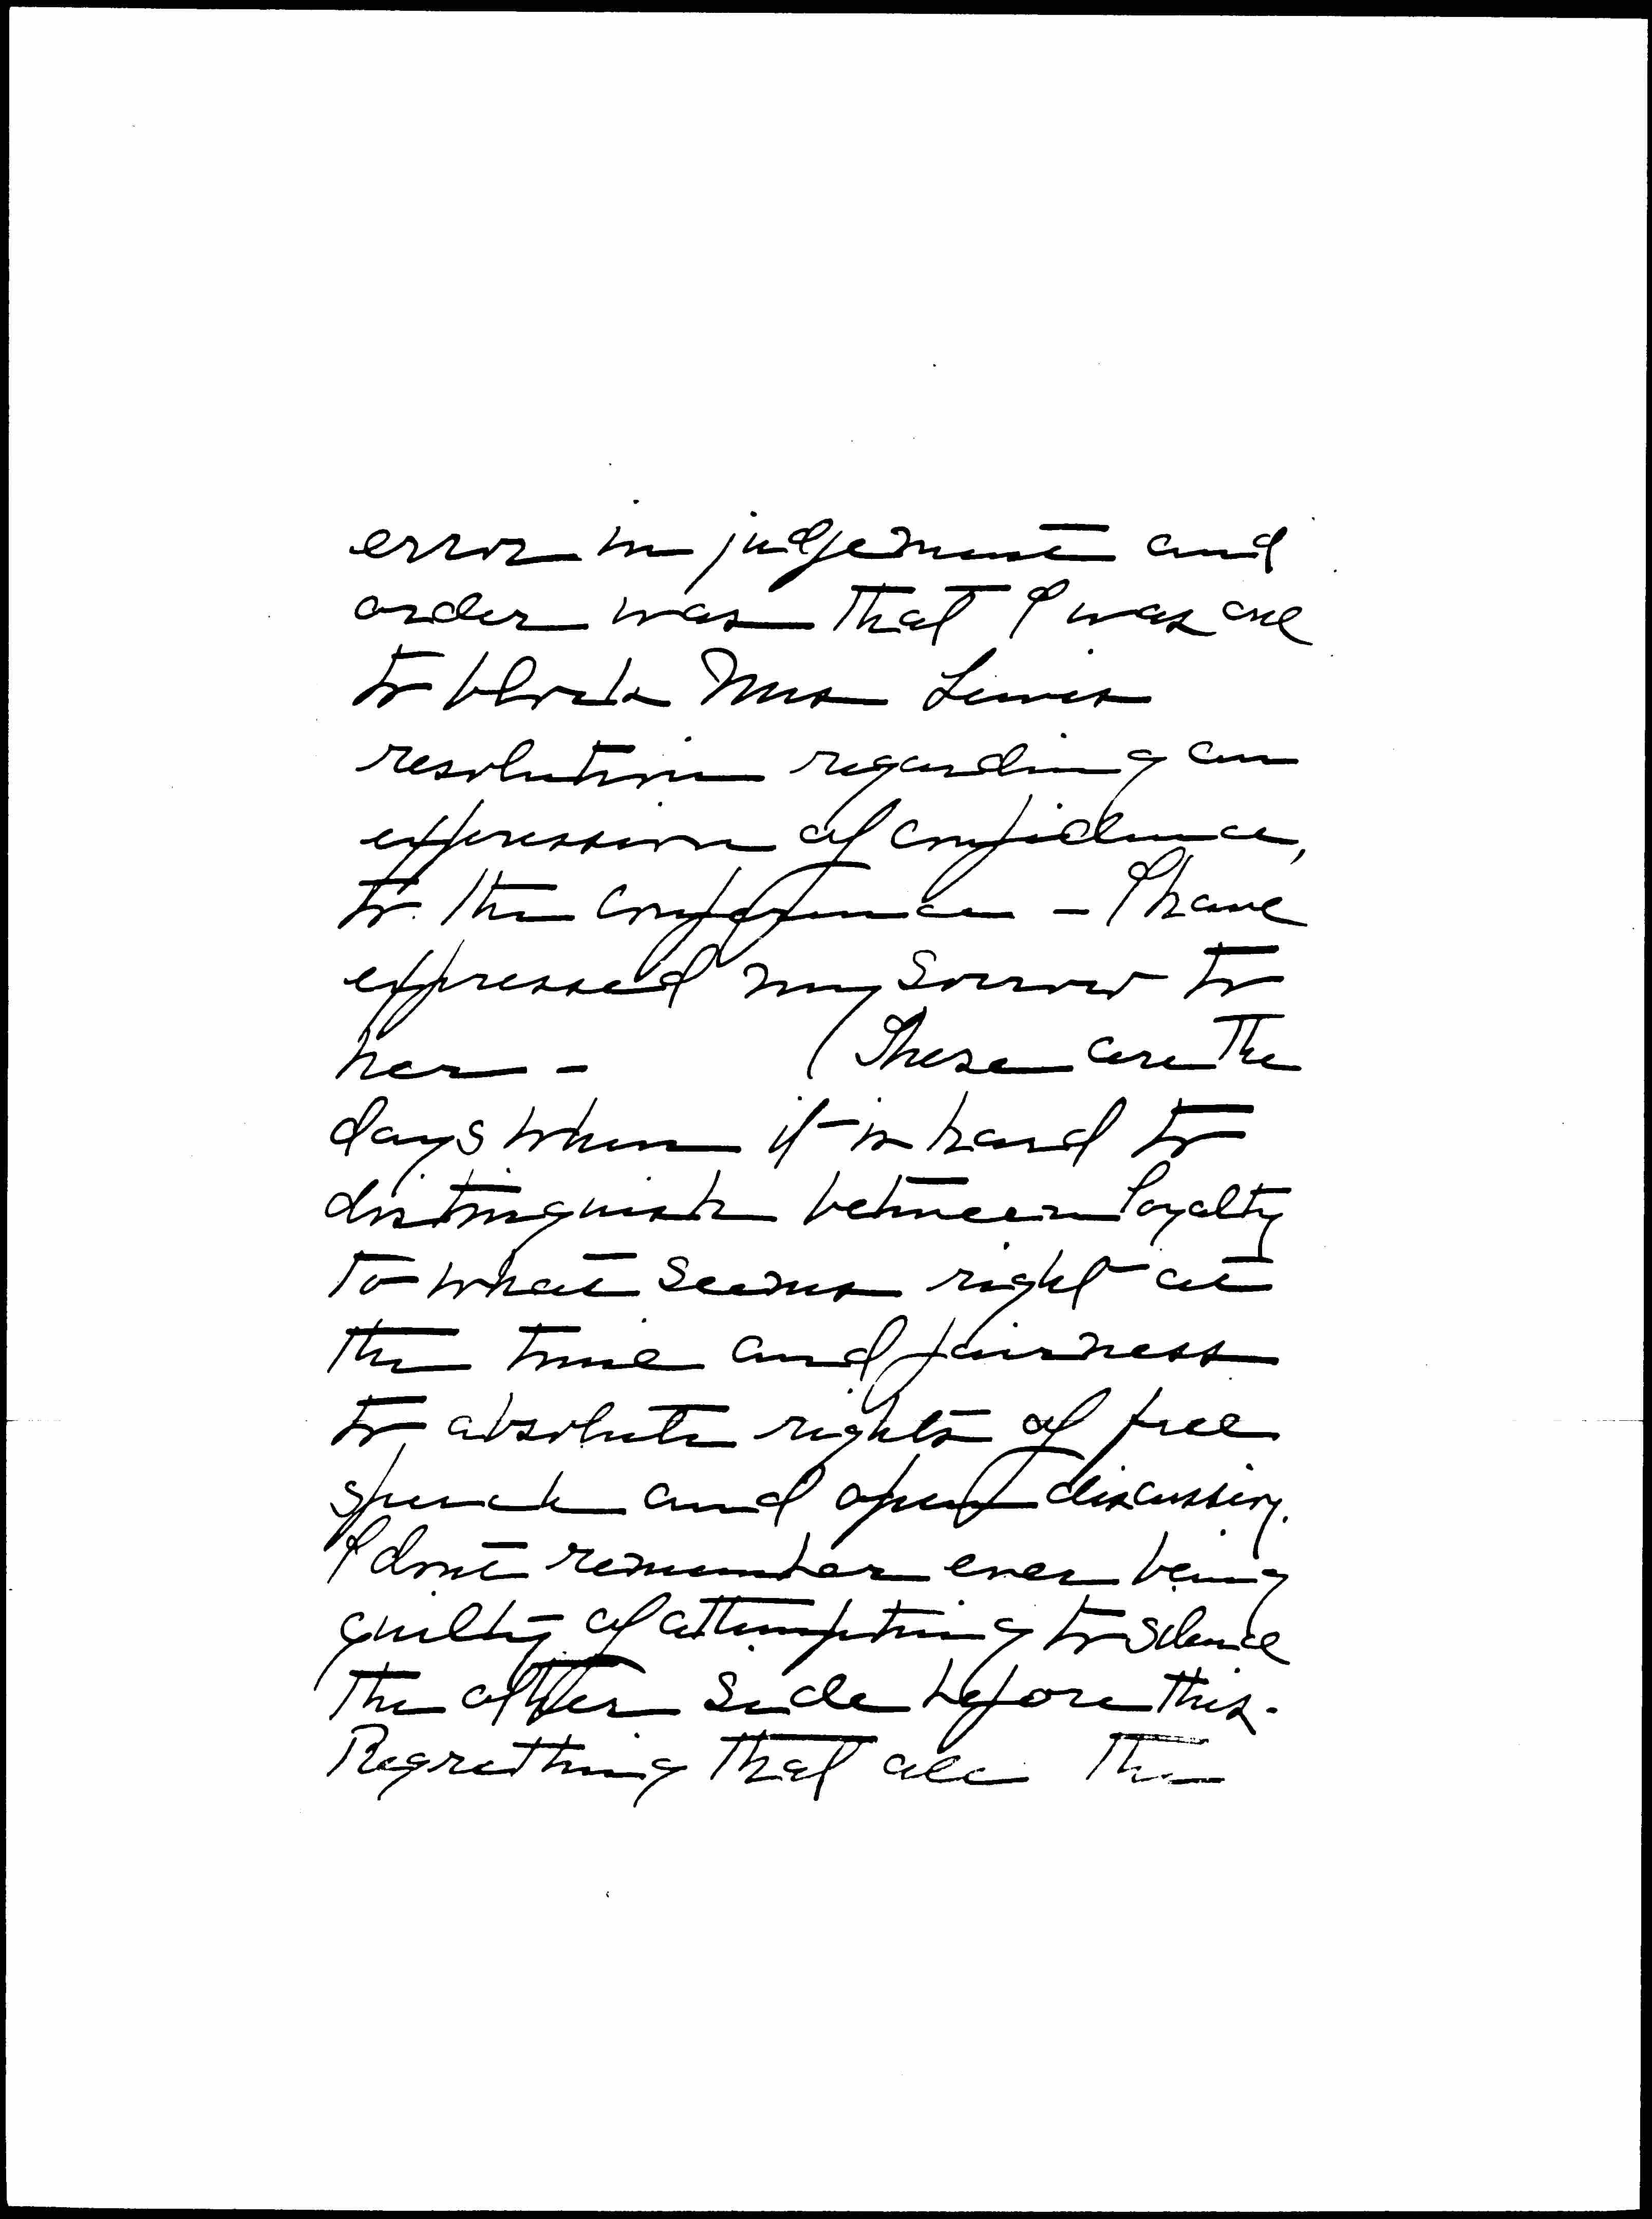 error in judgement and
order was that I was one
to block Mrs Lewis
resolution regarding an
expression of confidence,
to the conference - I have
expressed my sorrow to
her - (These are the
days when it is hard to
distinguish between loyalty
to what seems right at
the time and fairness
to absolute rights of free
speech and open discussion.
I dont remember ever being
guilty of attempting to silence
the other side before this.
Regretting that all the